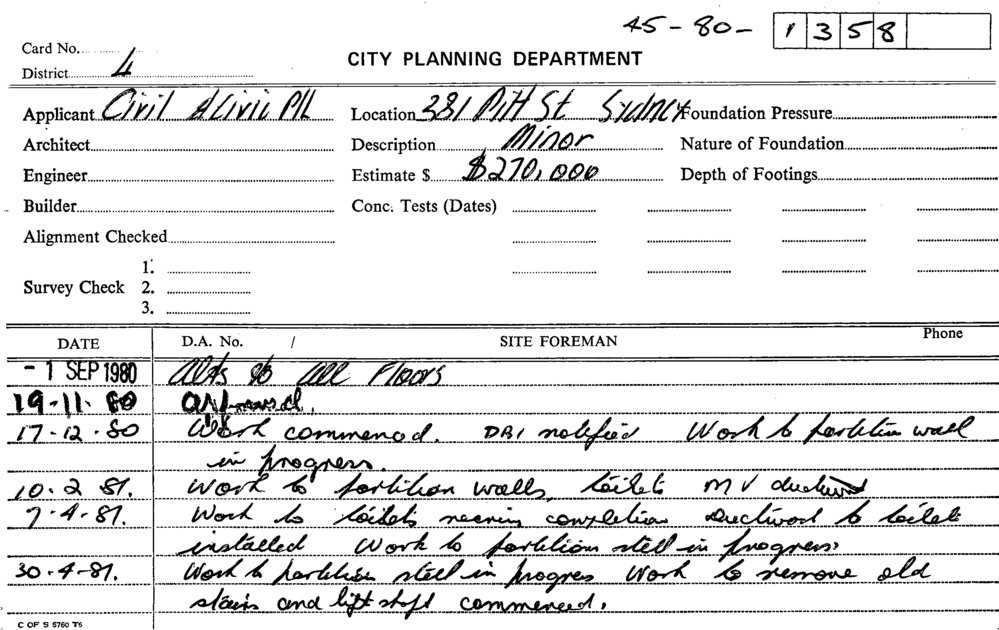 45-80- 1358
Card No.
CITY PLANNING DEPARTMENT
District 4
Applicant Civil & Civic P/L Location 381 Pitt St Sydney Foundation Pressure
Architect Description Minor Nature of Foundation
Engineer Estimate $ $270,000 Depth of Footings
Builder Conc. Tests (Dates)
Alignment Checked
1.
Survey Check 2.
3.
DATE D.A. No. / SITE FOREMAN Phone
- 1 SEP 1980 Alts to all Floors
19-11-80
17-12-80 Work commenced. DBI notified Work to partition wall
in progress.
10.2 81. Work to partition walls, toilets M V
7-4-81. Work to toilets nearing completion Ductwork to toilets
installed Work to partitions still in progress.
30-4-81. Work to partition still in progres Work to remove old
stairs and lift shaft commenced.
C OF S 5760 T6